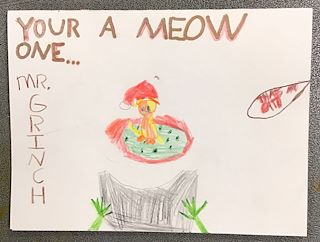 YOUR A MEOW
ONE...
MR.
GRINCH